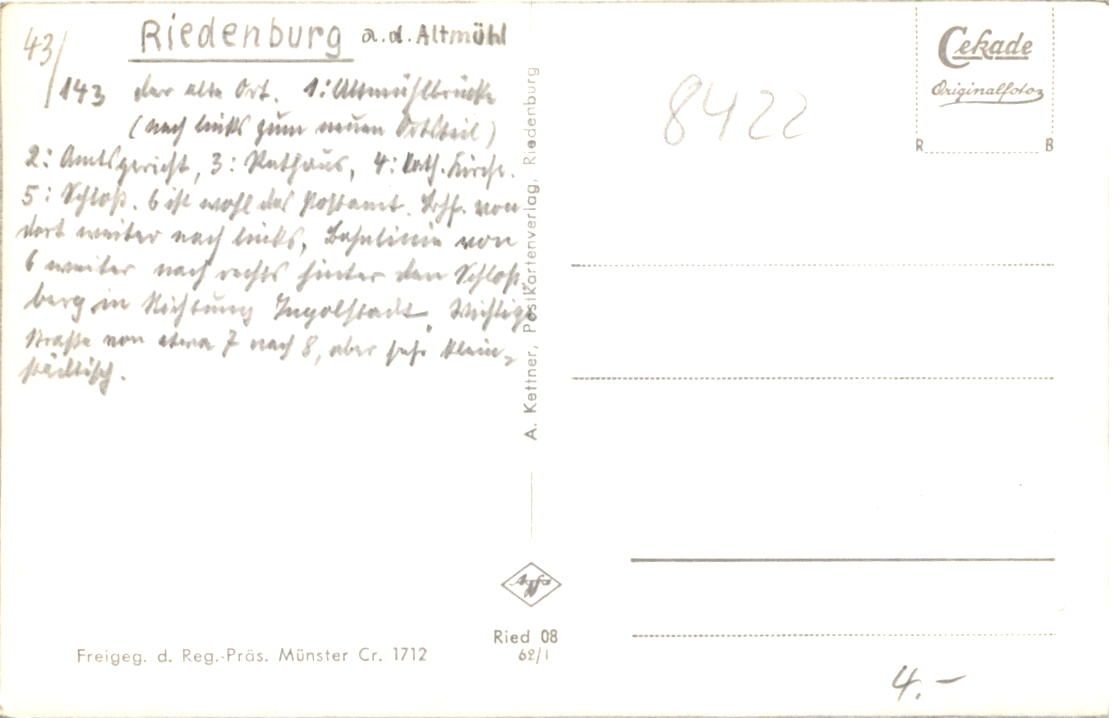 43/
Riedenburg a.d. Altmühl
143 der alte Ort. 1: Altmühlbrücke
(nach links zum neuen Ortsteil)
2: Amtsgericht, 3: Rathaus, 4: Kath. Kirche.
5: Schloß. 6 ist wohl das Postamt. Bhf. von
dort weiter nach links, Bahnlinie von
6 weiter nach rechts hinter den Schloß-
berg in Richtung Ingolstadt. Wichtige
Straße von etwa 7 nach 8, aber sehr klein-
städtisch.
8422
Cekade
Originalfoto
R B
A. Kettner, Postkartenverlag, Riedenburg
Agfa
Ried 08
62/1
Freigeg. d. Reg.-Präs. Münster Cr. 1712
4.-